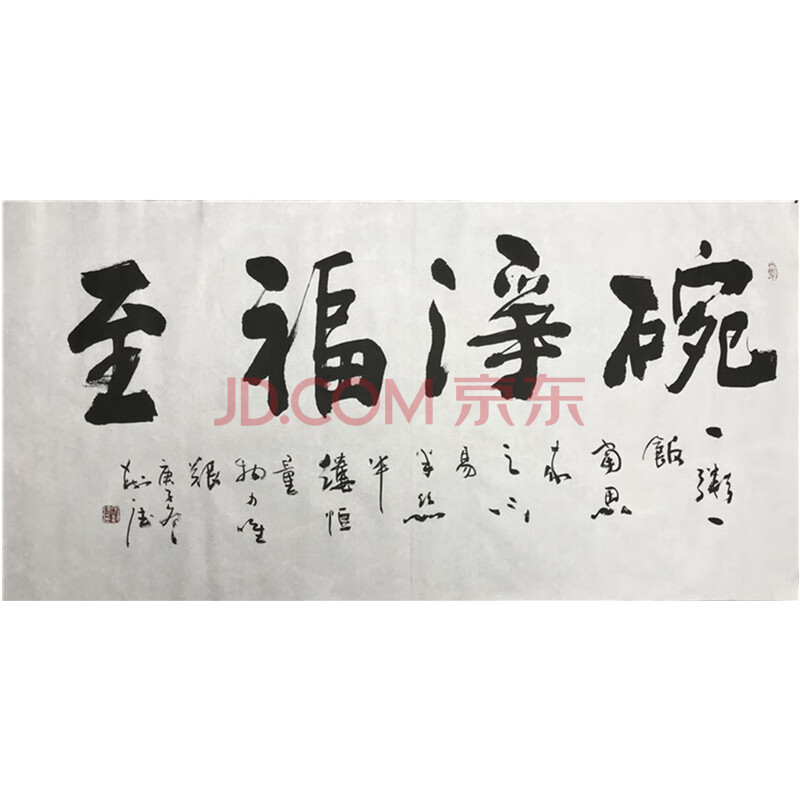 碗淨福至
一粥一
飯
當思
來
之不
易
半絲
半
縷恒
量
物力唯
艱
庚子冬
JD.COM 京东